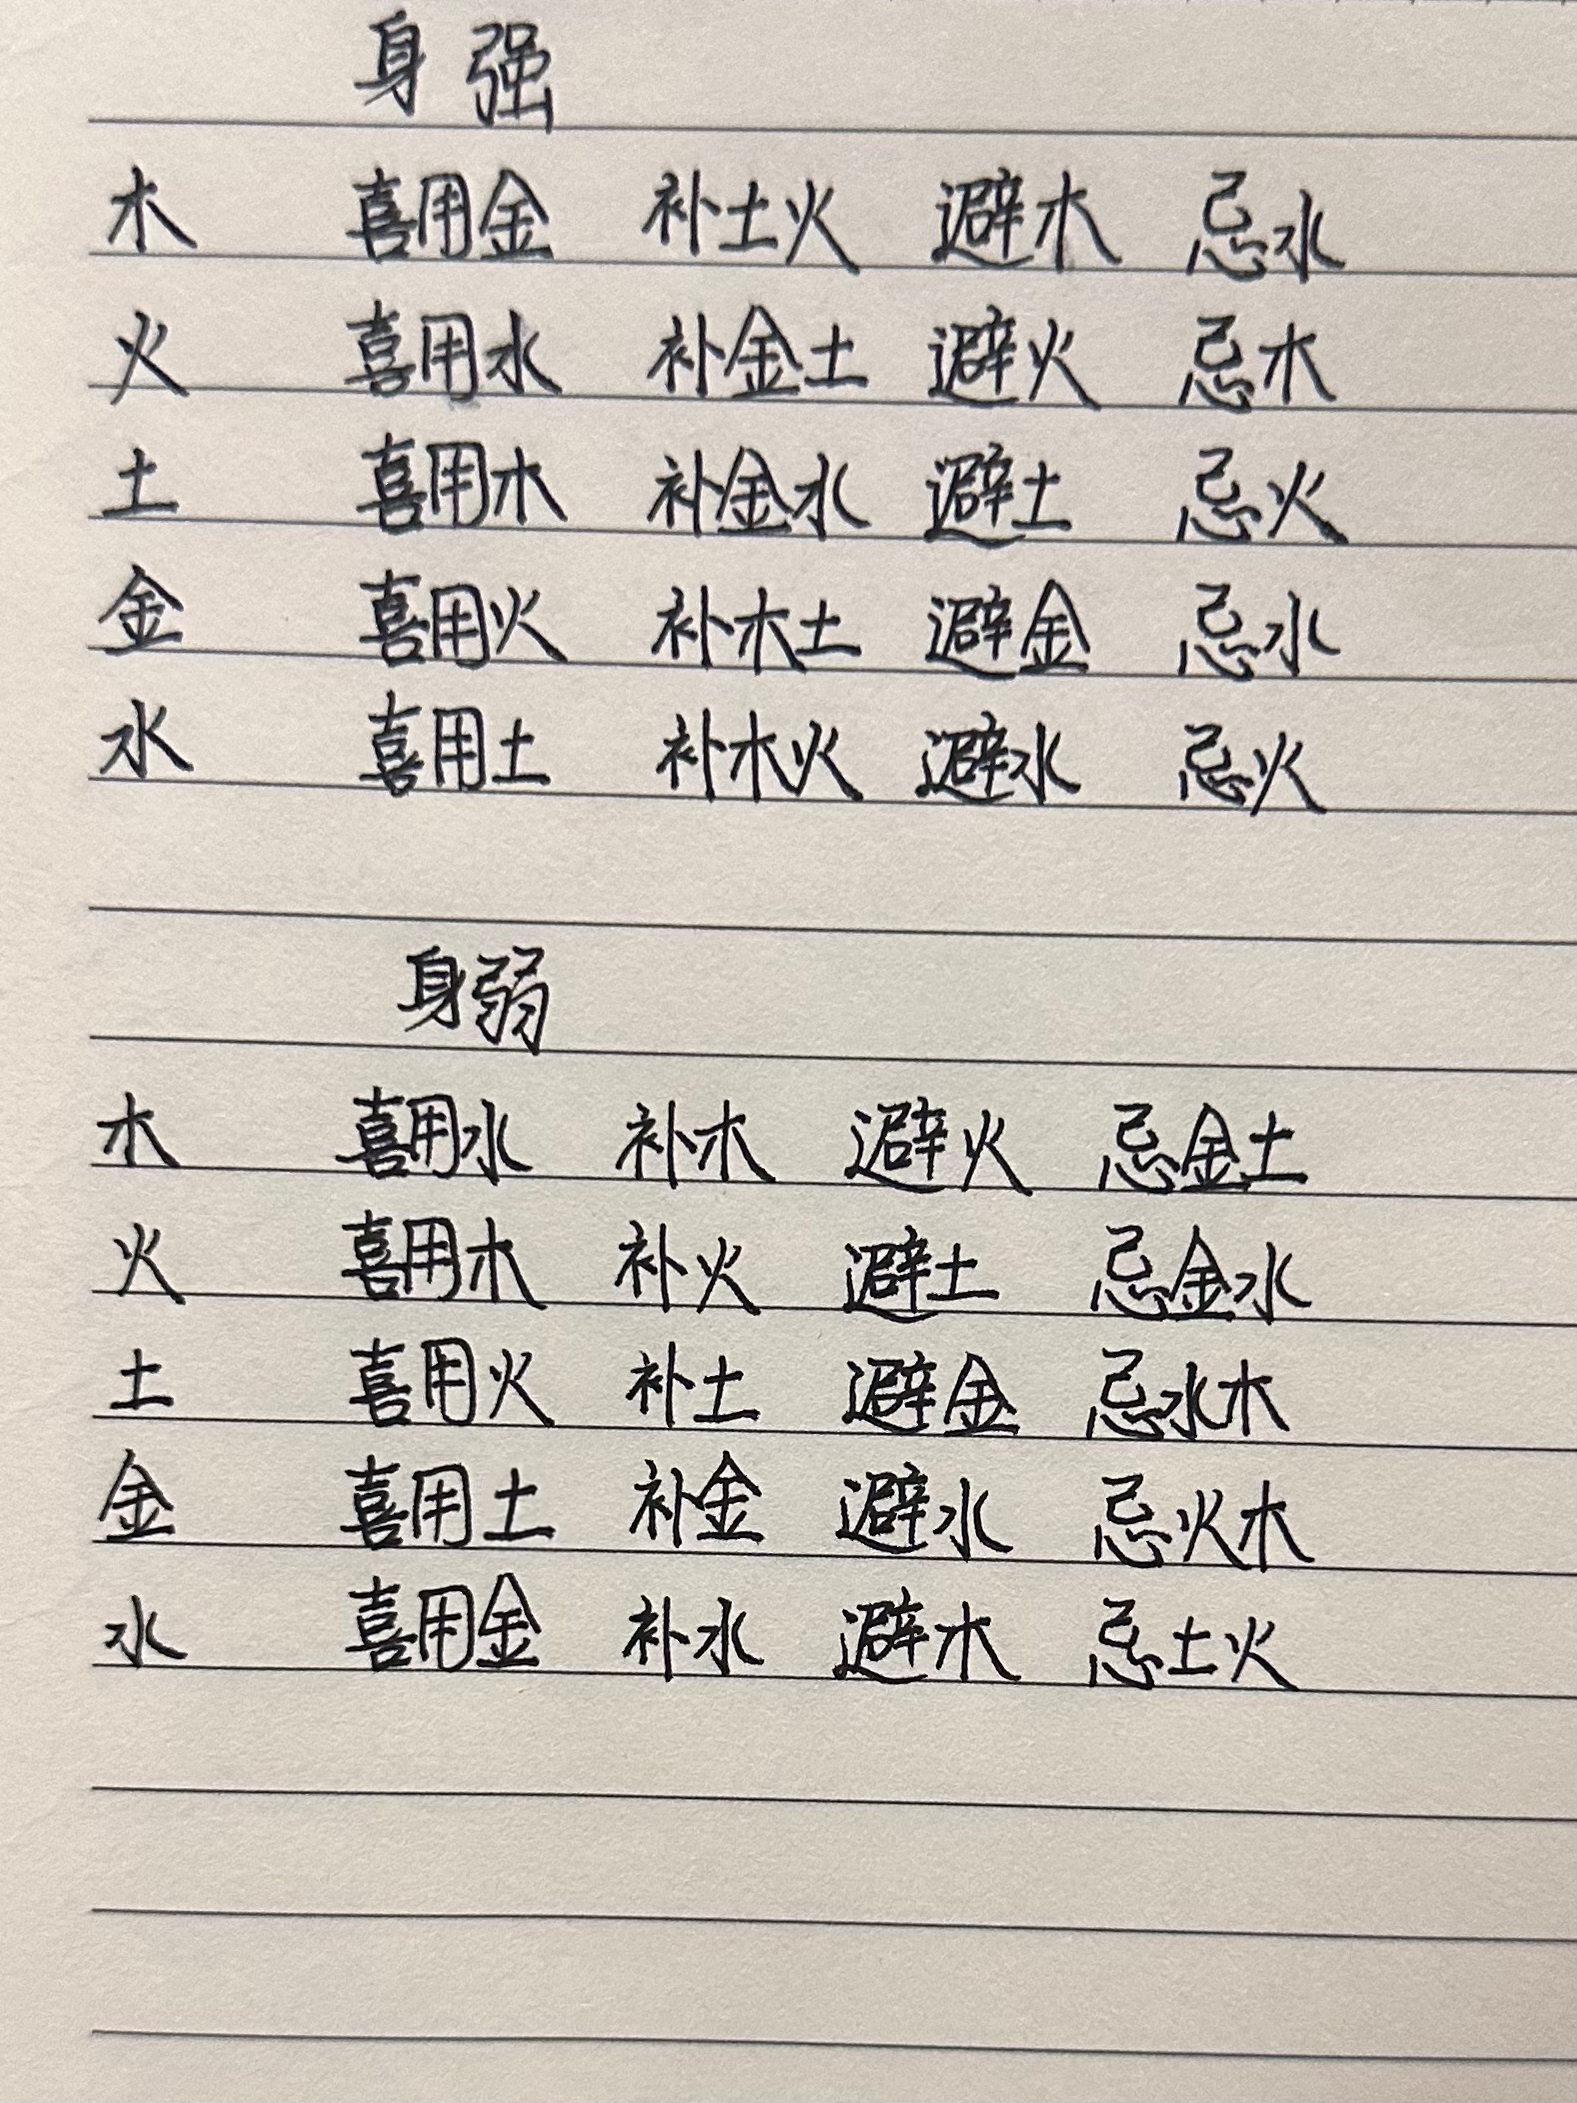 身强
木 喜用金 补土火 避木 忌水
火 喜用水 补金土 避火 忌木
土 喜用木 补金水 避土 忌火
金 喜用火 补木土 避金 忌水
水 喜用土 补木火 避水 忌火
身弱
木 喜用水 补木 避火 忌金土
火 喜用木 补火 避土 忌金水
土 喜用火 补土 避金 忌水木
金 喜用土 补金 避水 忌火木
水 喜用金 补水 避木 忌土火